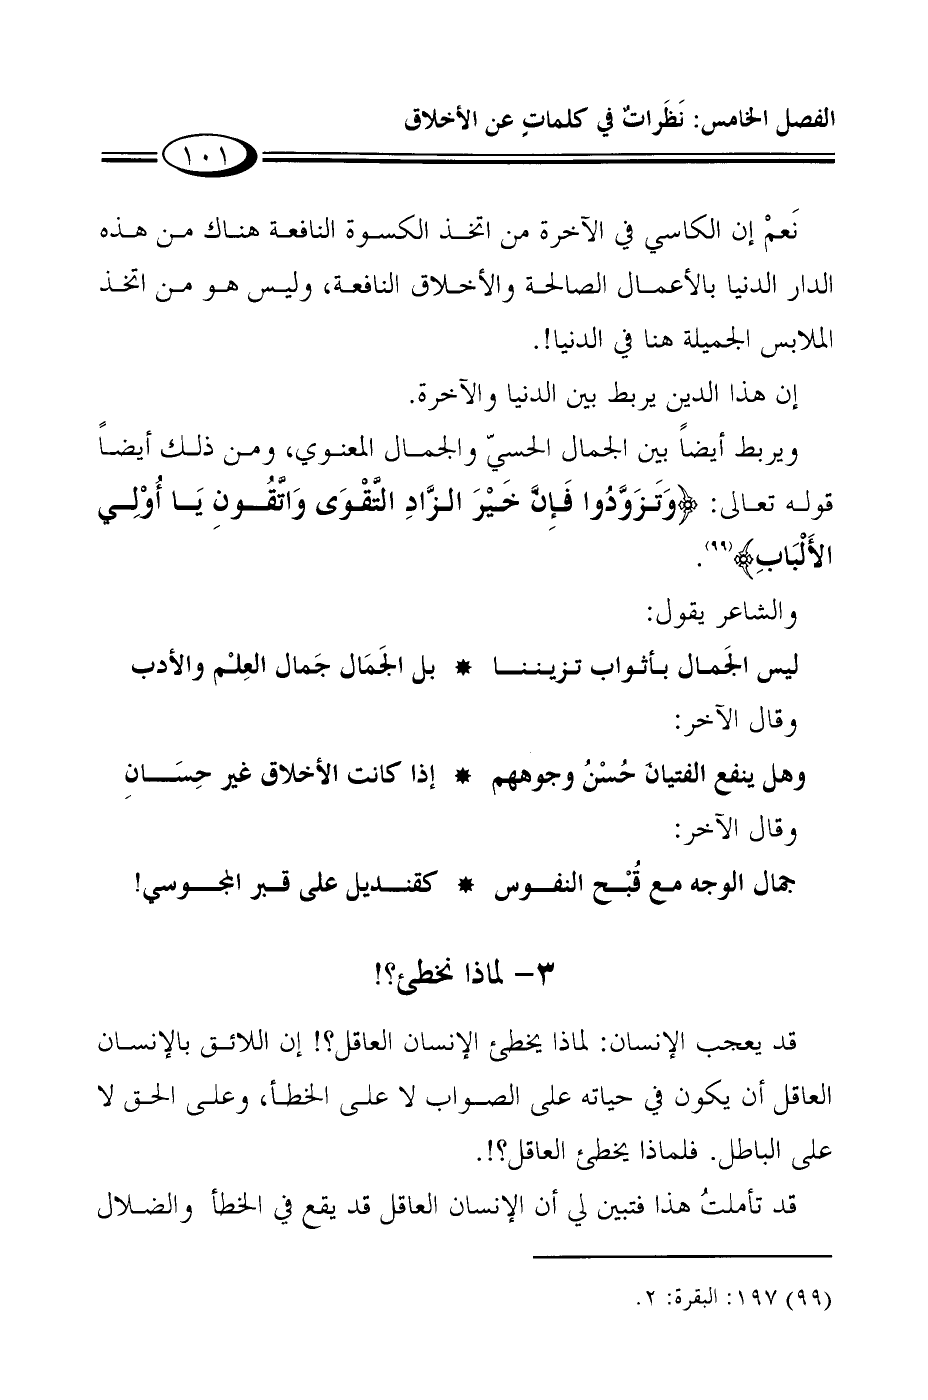 الفصل الخامس: نَظَراتٌ في كلماتٍ عن الأخلاق
١٠١
نَعمْ إن الكاسي في الآخرة من اتخذ الكسوة النافعة هناك من هذه
الدار الدنيا بالأعمال الصالحة والأخلاق النافعة، وليس هو من اتخذ
الملابس الجميلة هنا في الدنيا!.
إن هذا الدين يربط بين الدنيا والآخرة.
ويربط أيضاً بين الجمال الحسيّ والجمال المعنوي، ومن ذلك أيضاً
قوله تعالى: ﴿وَتَزَوَّدُوا فَإِنَّ خَيْرَ الزَّادِ التَّقْوَى وَاتَّقُونِ يَا أُوْلِي
الأَلْبَابِ﴾(٩٩).
والشاعر يقول:
ليس الجَمال بأثواب تزيننا * بل الجَمَال جَمال العِلْم والأدب
وقال الآخر:
وهل ينفع الفتيانَ حُسْنُ وجوههم * إذا كانت الأخلاق غير حِسَانِ
وقال الآخر:
جمال الوجه مع قُبْح النفوس * كقنديل على قبر المجوسي!
٣- لماذا نخطئ؟!
قد يعجب الإنسان: لماذا يخطئ الإنسان العاقل؟! إن اللائق بالإنسان
العاقل أن يكون في حياته على الصواب لا على الخطأ، وعلى الحق لا
على الباطل. فلماذا يخطئ العاقل؟!.
قد تأملتُ هذا فتبين لي أن الإنسان العاقل قد يقع في الخطأ والضلال
(٩٩) ١٩٧: البقرة: ٢.